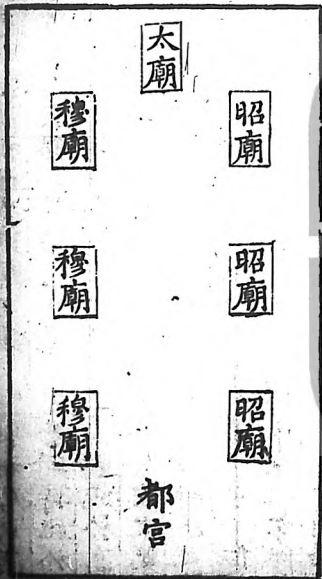 太廟
昭廟
穆廟
昭廟
穆廟
昭廟
穆廟
都宮